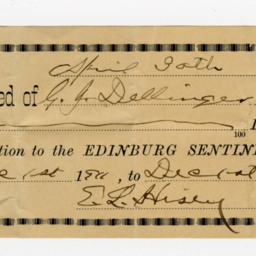 April 30th
ed of G. J. Dellinger
100
tion to the EDINBURG SENTINE
1st 18 , to Dec 1st
E. L. Hisey